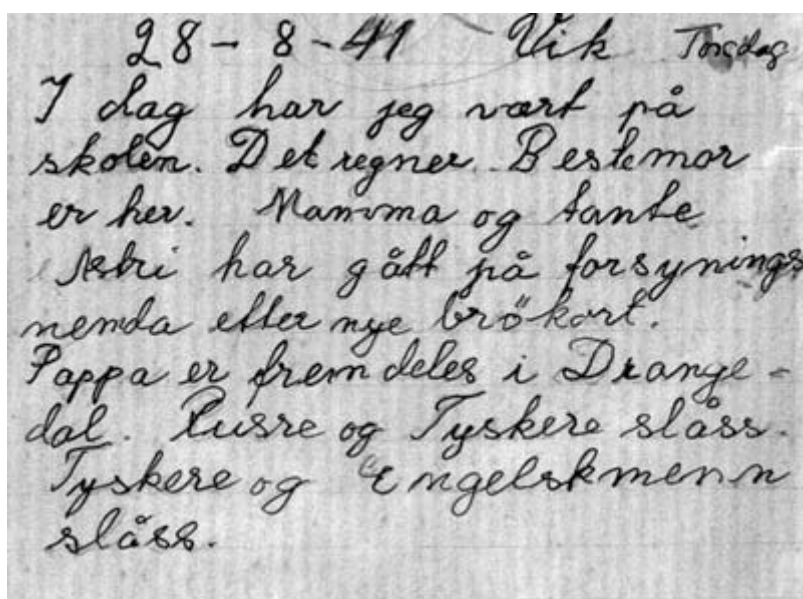 28 - 8 - 41 Vik Torsdag
I dag har jeg vært på
skolen. Det regner. Bestemor
er her. Mamma og tante
Astri har gått på forsynings
nemda etter nye brökort.
Pappa er frem deles i Drange-
dal. Russre og Tyskere slåss.
Tyskere og Engelskmenn
slåss.